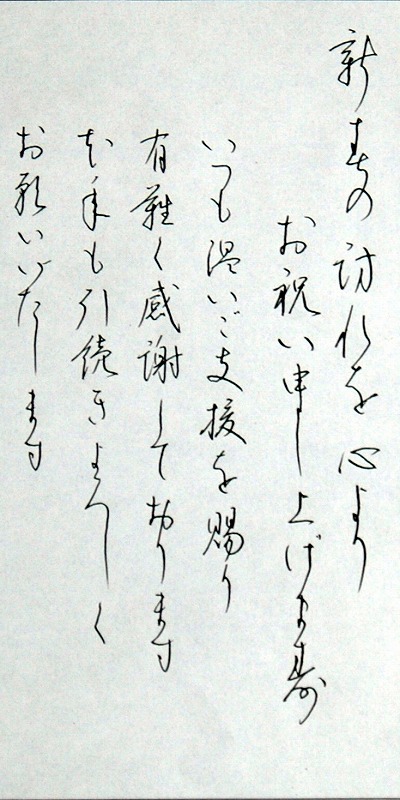 新春の訪れを心より
お祝い申し上げま寿
いつも温いご支援を賜り
有難く感謝しております
本年も引続きよろしく
お願いいたします